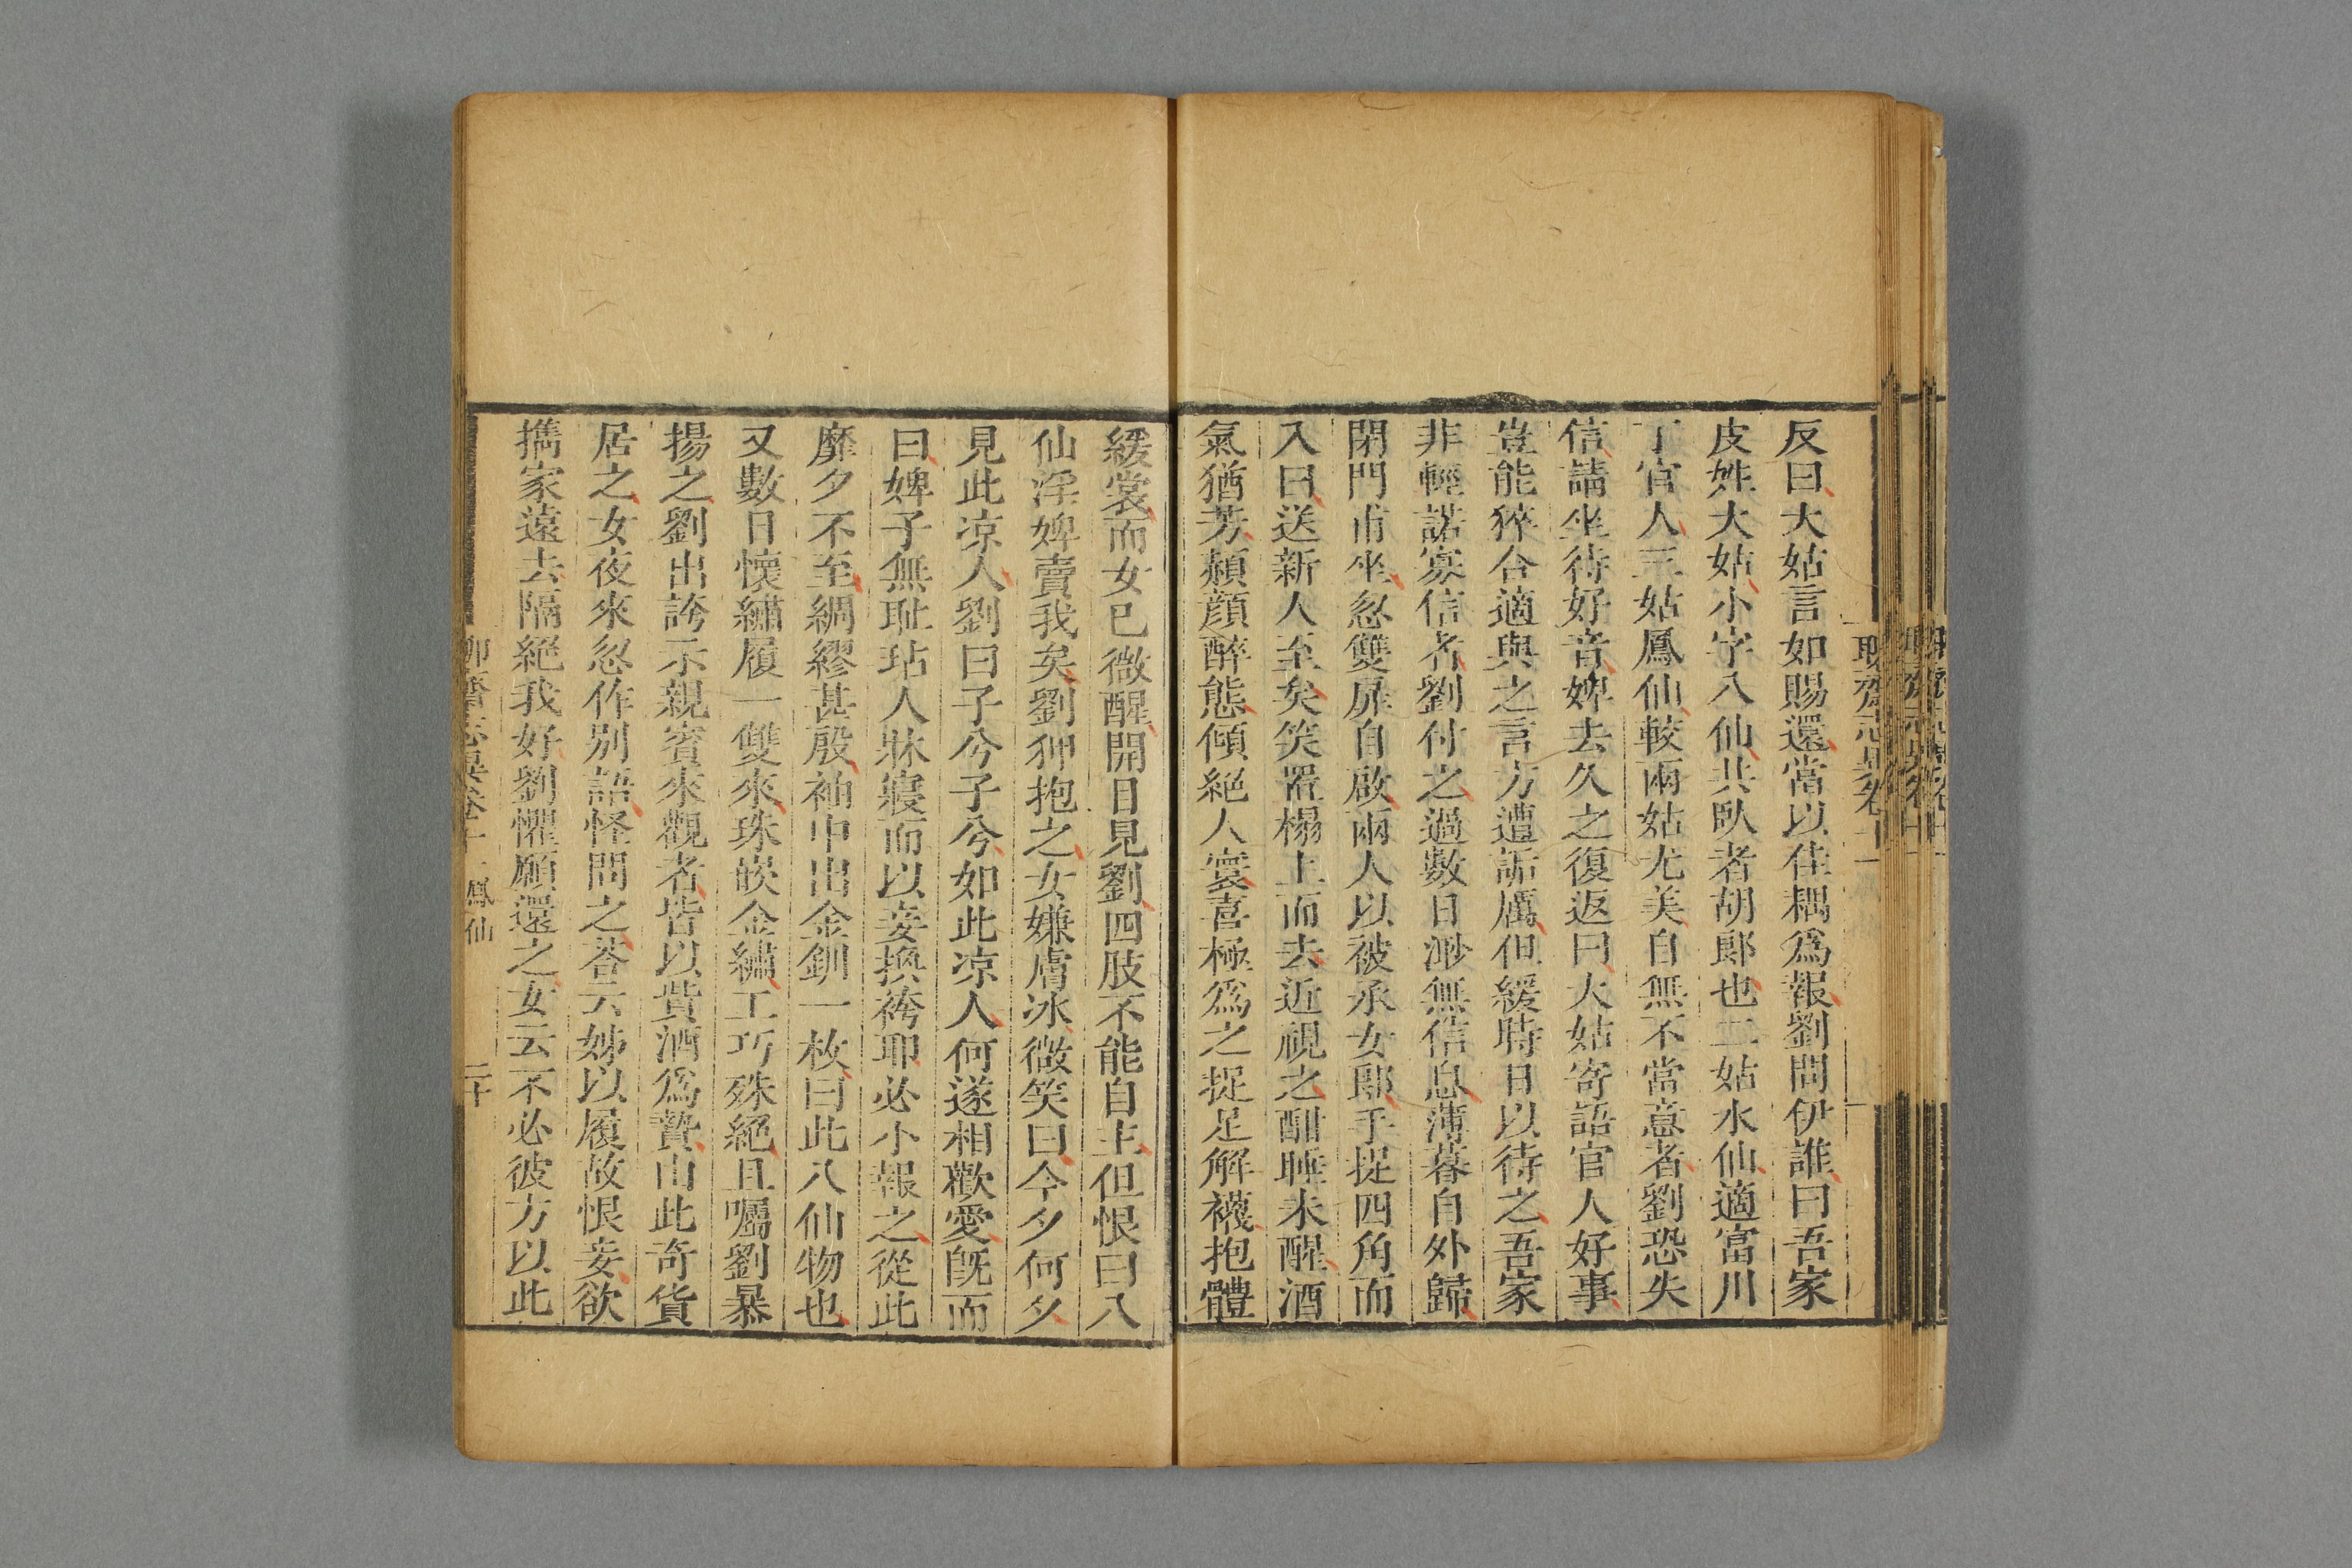 反曰大姑言如賜還當以佳耦爲報劉問伊誰曰吾家
皮姓大姑小字八仙共臥者胡郎也二姑水仙適富川
丁官人三姑鳳仙較兩姑尤美自無不當意者劉恐失
信請坐待好音婢去久之復返曰大姑寄語官人好事
豈能猝合適與之言方遭詬厲但緩時日以待之吾家
非輕諾寡信者劉付之過數日渺無信息薄暮自外歸
閉門甫坐忽雙扉自啟兩人以被承女郎手捉四角而
入曰送新人至矣笑置榻上而去近視之酣睡未醒酒
氣猶芳赬顔醉態傾絕人寰喜極爲之捉足解襪抱體
緩裳而女已微醒開目見劉四肢不能自主但恨曰八
仙淫婢賣我矣劉狎抱之女嫌膚冰微笑曰今夕何夕
見此凉人劉曰子兮子兮如此凉人何遂相歡愛既而
曰婢子無耻玷人牀寢而以妾換袴耶必小報之從此
靡夕不至綢繆甚殷袖中出金釧一枚曰此八仙物也
又數日懷繡履一雙來珠嵌金繡工巧殊絕且囑劉暴
揚之劉出誇示親賓來觀者皆以貲酒爲贄由此奇貨
居之女夜來忽作別語怪問之荅云姊以履故恨妾欲
擕家遠去隔絕我好劉懼願還之女云不必彼方以此
聊齋志異卷十一 鳳仙 二十